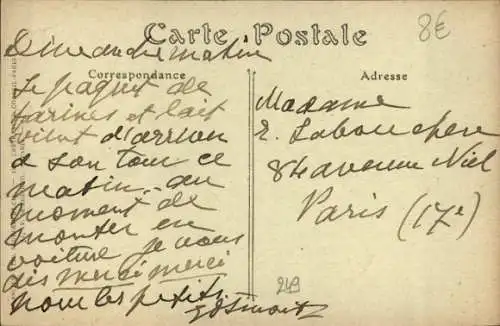 Carte Postale
8€
Correspondance
Adresse
Dimanche matin
Le paquet de
farines et lait
vient d'arriver
à son tour ce
matin.. au
moment de
monter en
voiture je vous
dis merci merci
pour les petits.
Madame
E. Labouchere
84 avenue Niel
Paris (17e)
249